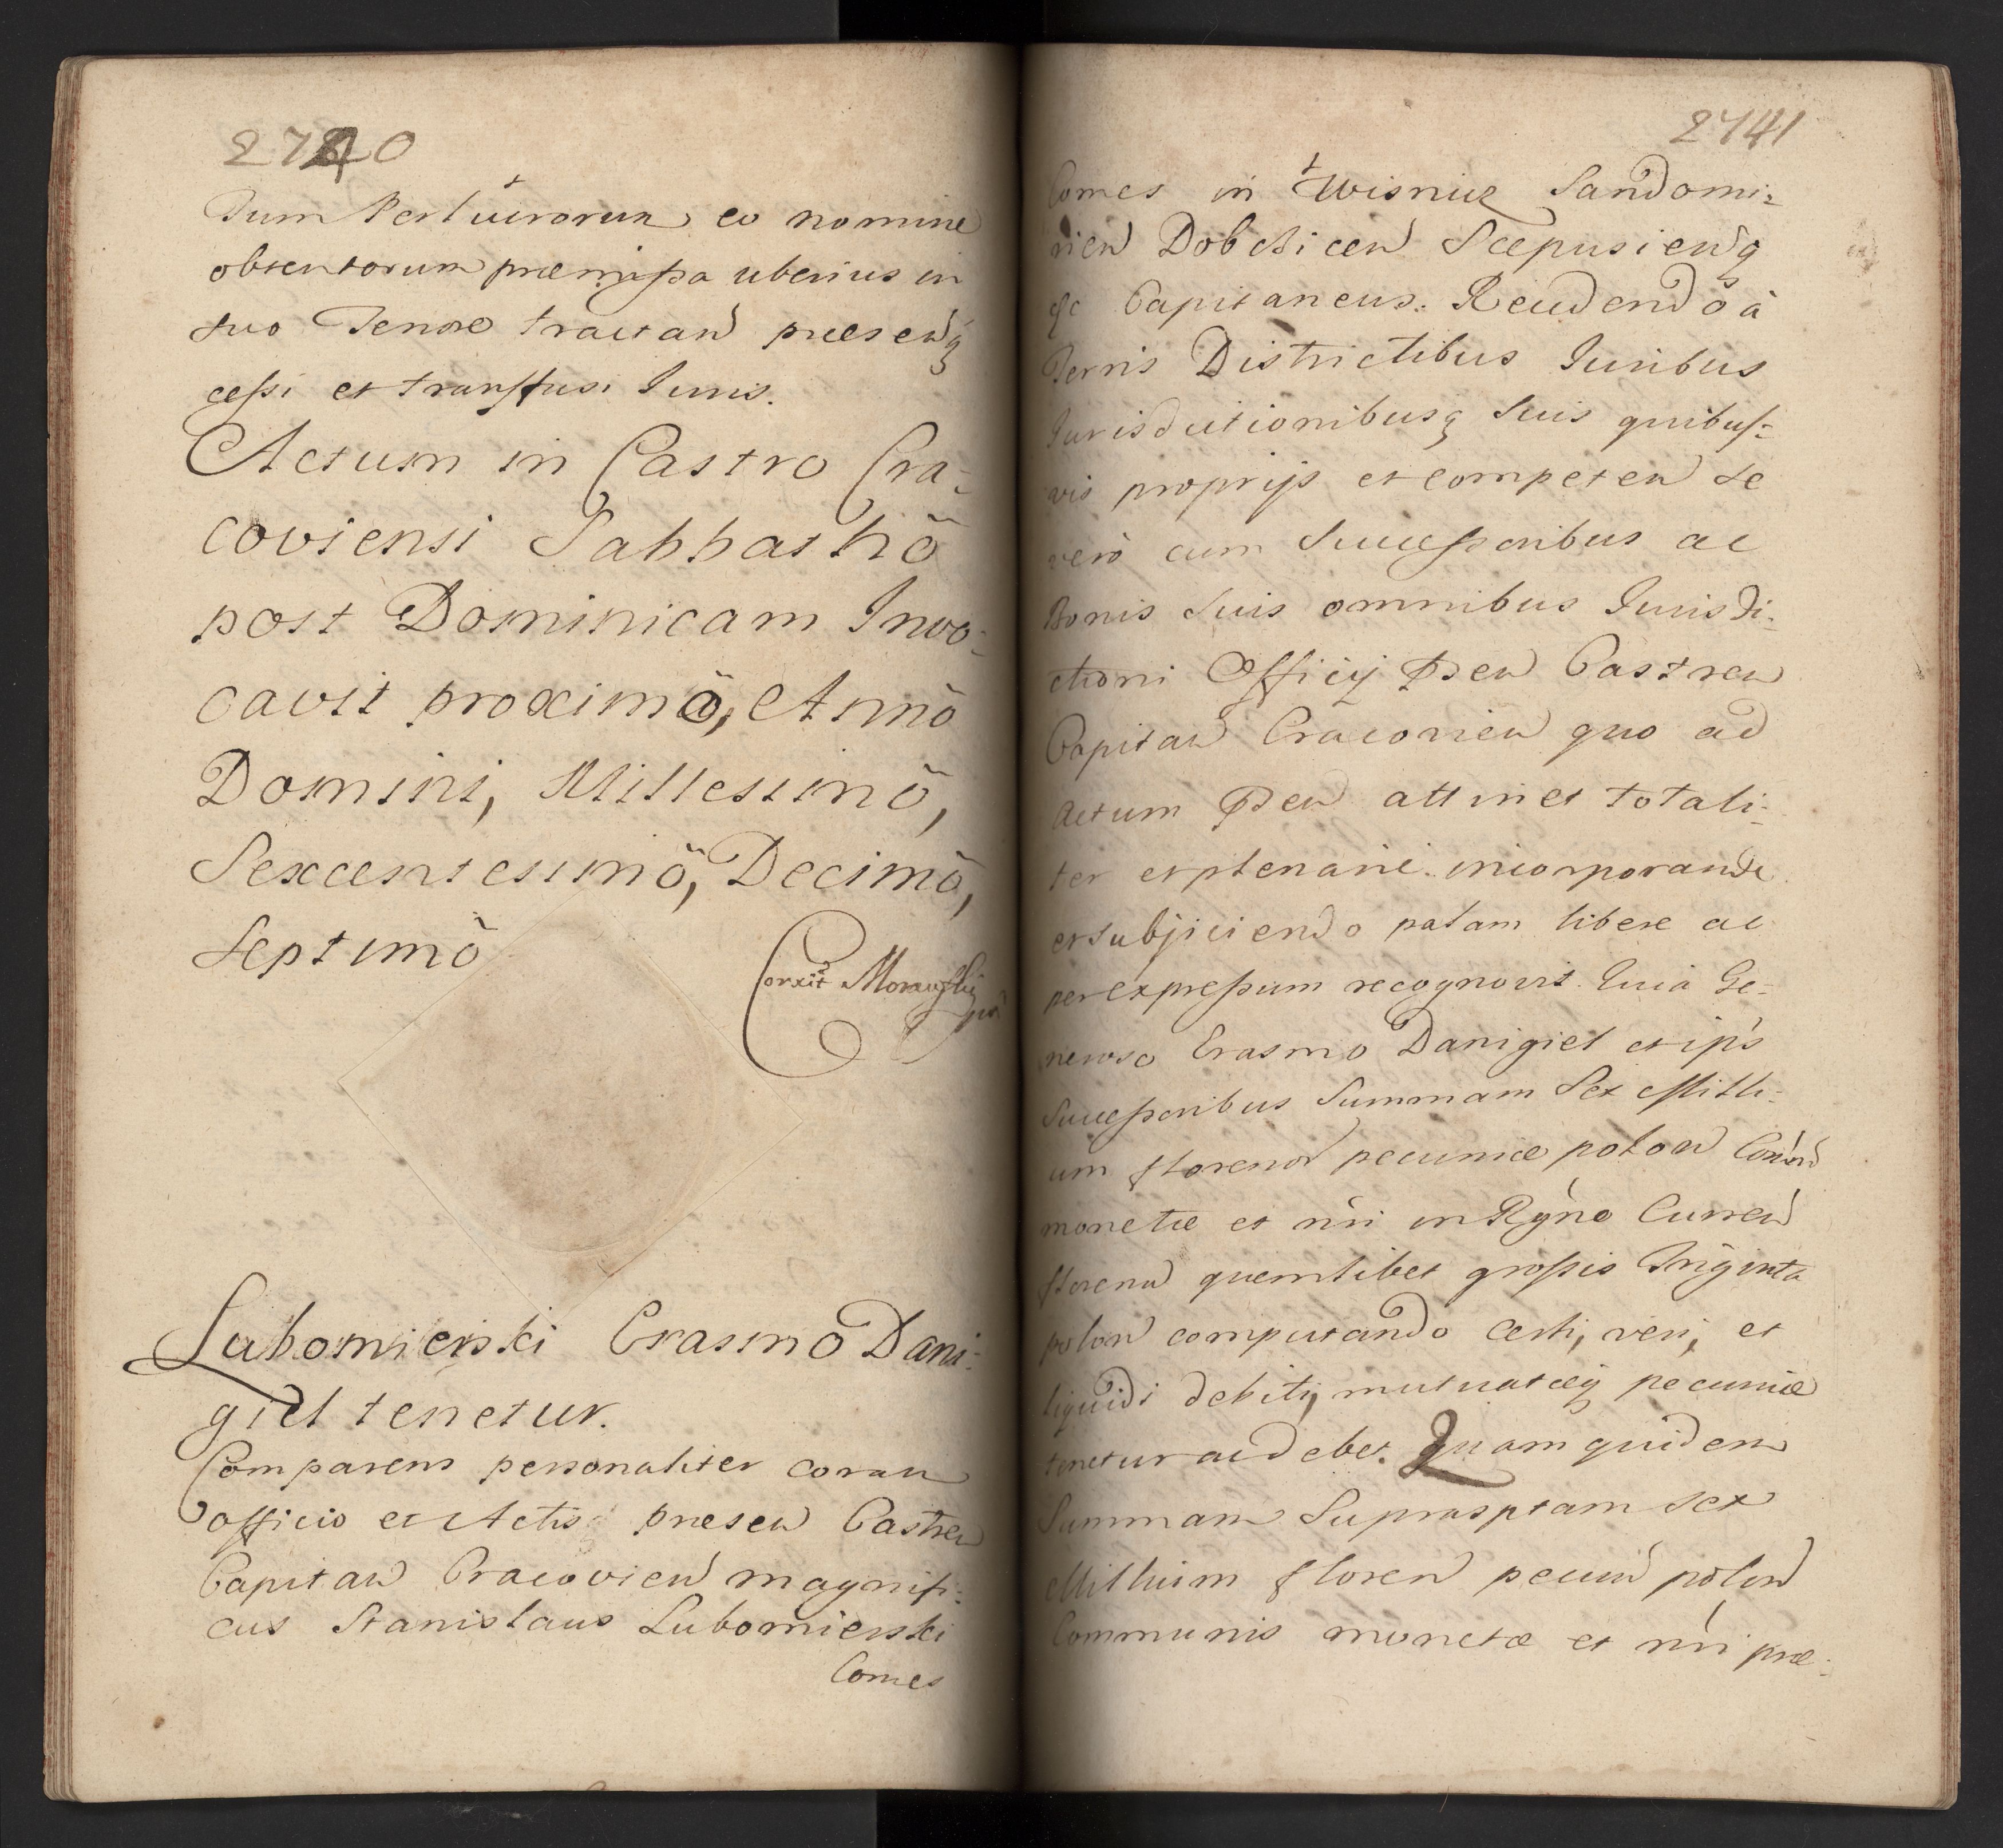 2740
dum Pertuerorum eo nomine
obtentorum præmissa uberius in
suo Tenore tractand presenq
cessi et transfusi Iuris.
Actum in Castro Cra-
coviensi Sabbathô
post Dominicam Invo-
cavit proximô, Annô
Domini, Millesimô,
Sexcentesimô, Decimô,
Septimô
Corxit Morawski
Lubomierski Erasmo Dani-
giel tenetur.
Comparens personaliter coram
officio et Actis presen Castren
Capitan Cracovien magnifi-
cus Stanislaus Lubomierski
Comes
2741
Comes in Wisnicz Sandomi-
rien Dobczicen Scepusienq
&c Capitaneus. Recedendô à
Terris Districtibus Iuribus
Iurisdictionibusq suis quibus-
vis proprijs et competen se
verô cum Successoribus ac
Bonis suis omnibus Iurisdi-
ctioni Officij Psen Castren
Capitan Cracovien quo ad
Actum Psen attinet totali-
ter et plenarie incorporando
et subjiciendo palam libere ac
per expressum recognovit. Quia Ge-
neroso Erasmo Danigiel et ips
Successoribus Summam Sex Milli-
um floreno pecuniæ polon Comun
monetæ et nri in Rgno Curren
floreno quemlibet grossis Triginta
polon computando certi, veri, et
liquidi debiti, mutuatæq pecuniæ
tenetur ac debet. Quam quidem
Summam Suprasptam sex
Millium floren pecun polon
Communis monetæ et nri præ-